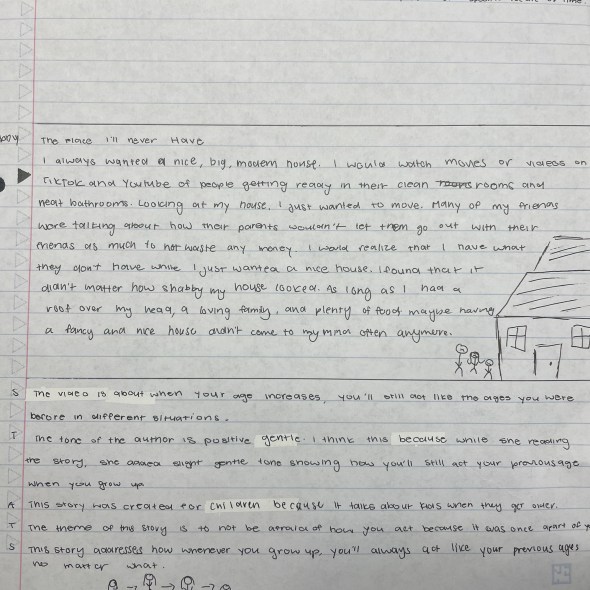 The Place I'll never Have
I always wanted a nice, big, modern house. I would watch movies or videos on
TikTok and Youtube of people getting ready in their clean rooms and
neat bathrooms. Looking at my house, I just wanted to move. Many of my friends
were talking about how their parents wouldn't let them go out with their
friends as much to not waste any money. I would realize that I have what
they don't have while I just wanted a nice house. I found that it
didn't matter how shabby my house looked. As long as I had a
roof over my head, a loving family, and plenty of food maybe having
a fancy and nice house didn't come to my mind often anymore.
S The video is about when your age increases, you'll still act like the ages you were
before in different situations.
T The tone of the author is positive gentle. I think this because while she reading
the story, she added slight gentle tone showing how you'll still act your previous age
when you grow up
A This story was created for children because it talks about kids when they get older.
T The theme of this story is to not be afraid of how you act because it was once apart of
S This story addresses how whenever you grow up, you'll always act like your previous ages
no matter what.